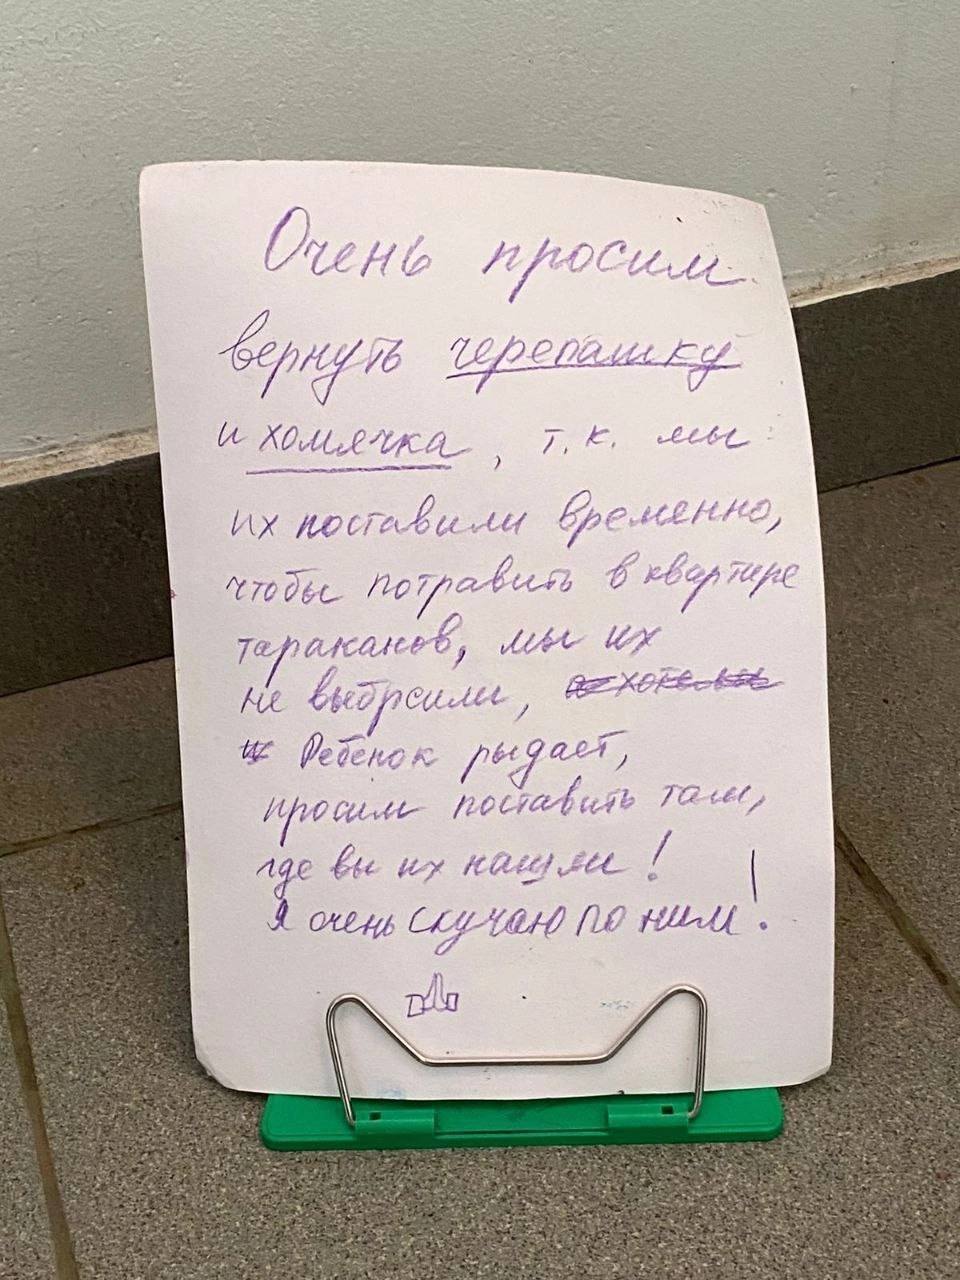 Очень просим
вернуть черепашку
и хомячка, т.к. мы
их поставили временно,
чтобы потравить в квартире
тараканов, мы их
не выбрсили,
Ребёнок рыдает,
просим поставить там,
где вы их нашли!
Я очень скучаю по ним!